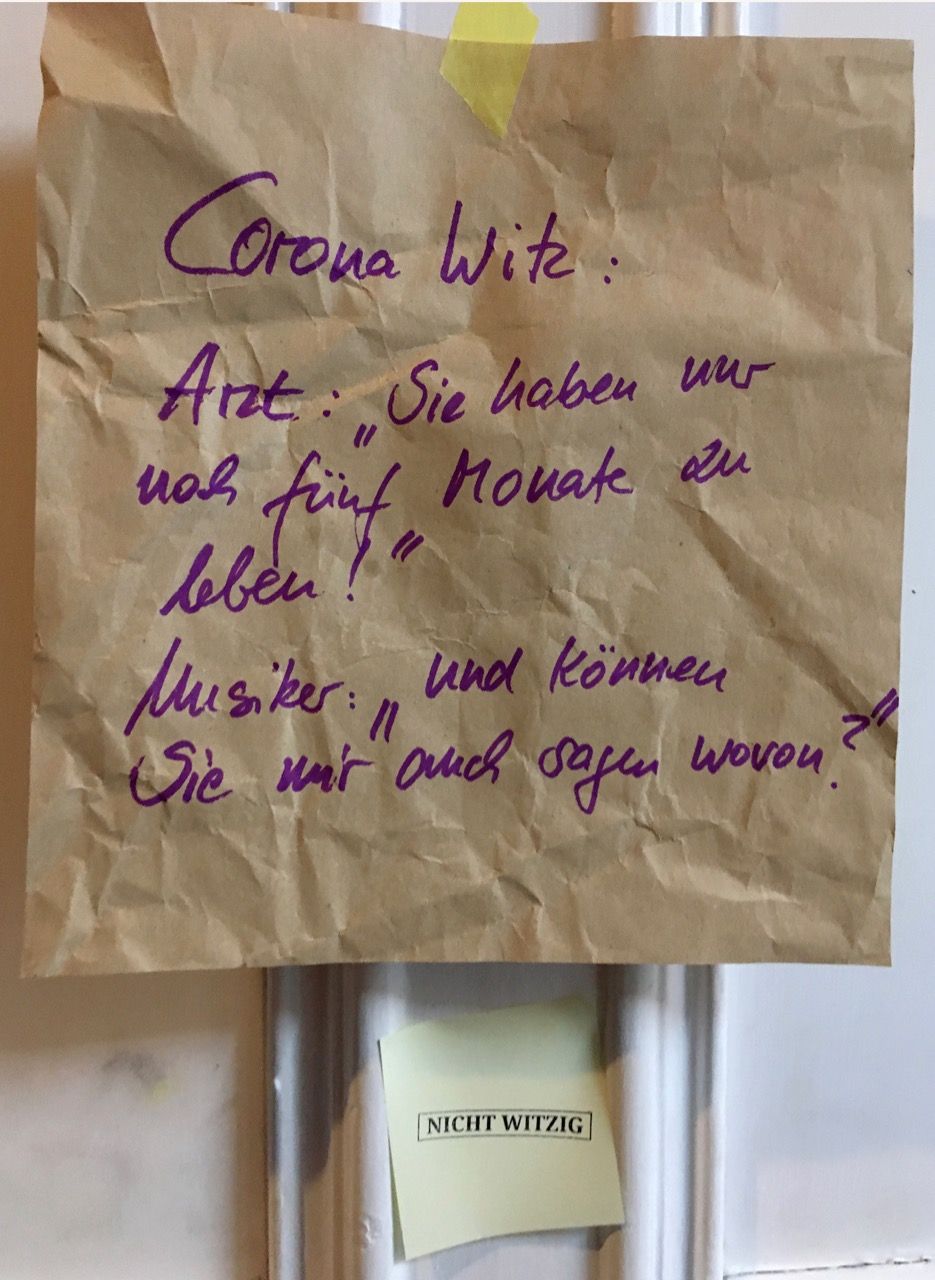 Corona Witz:
Arzt: „Sie haben nur
noch fünf Monate zu
leben!"
Musiker: „und können
Sie mir auch sagen wovon?"
NICHT WITZIG